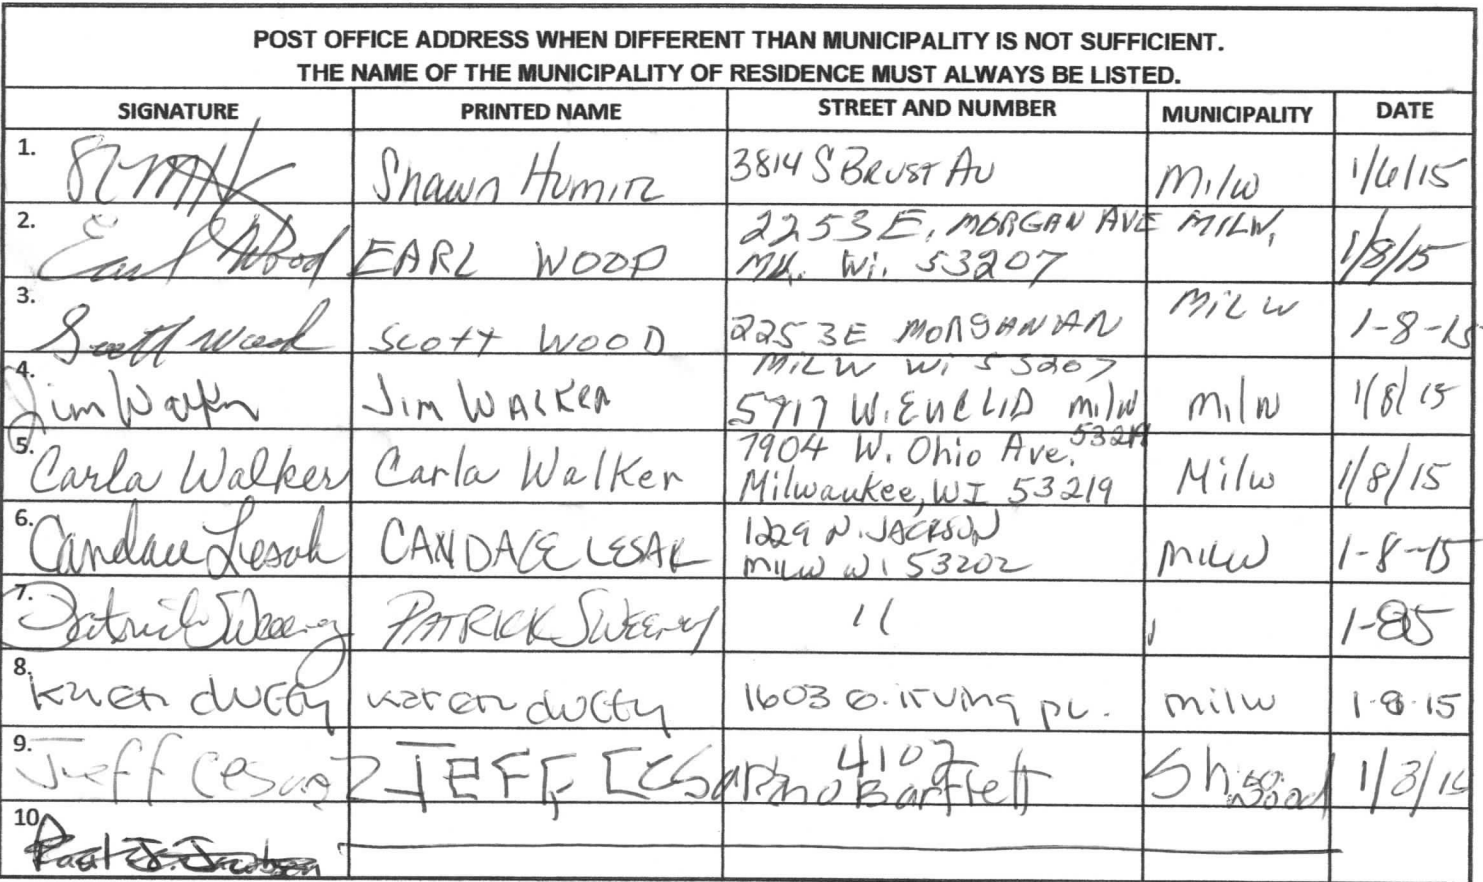 POST OFFICE ADDRESS WHEN DIFFERENT THAN MUNICIPALITY IS NOT SUFFICIENT.
THE NAME OF THE MUNICIPALITY OF RESIDENCE MUST ALWAYS BE LISTED.
SIGNATURE PRINTED NAME STREET AND NUMBER MUNICIPALITY DATE
1. Shawn 3814 S BRUST AV Milw 1/6/15
2. Earl Wood EARL WOOD 2253 E. MORGAN AVE MILW, 1/8/15
MK. Wi. 53207
3. Scott Wood SCOTT WOOD 2253 E MORGAN AV MILW 1-8-15
MILW Wi 53207
4. Jim Walker JIM WALKER 5717 W. EUCLID milw Milw 1/8/15
53219
5. Carla Walker Carla Walker 7904 W. Ohio Ave. Milw 1/8/15
Milwaukee, WI 53219
6. Candace Lesak CANDACE LESAK 1229 N. JACKSON MILW 1-8-15
MILW WI 53202
7. Patrick Sweeney PATRICK SWEENEY 11
8. karen duffy karen duffy 1603 e. irving pl. milw 1-8-15
9. Jeff JEFF 4107 Shorewood
no Bartlett
10.